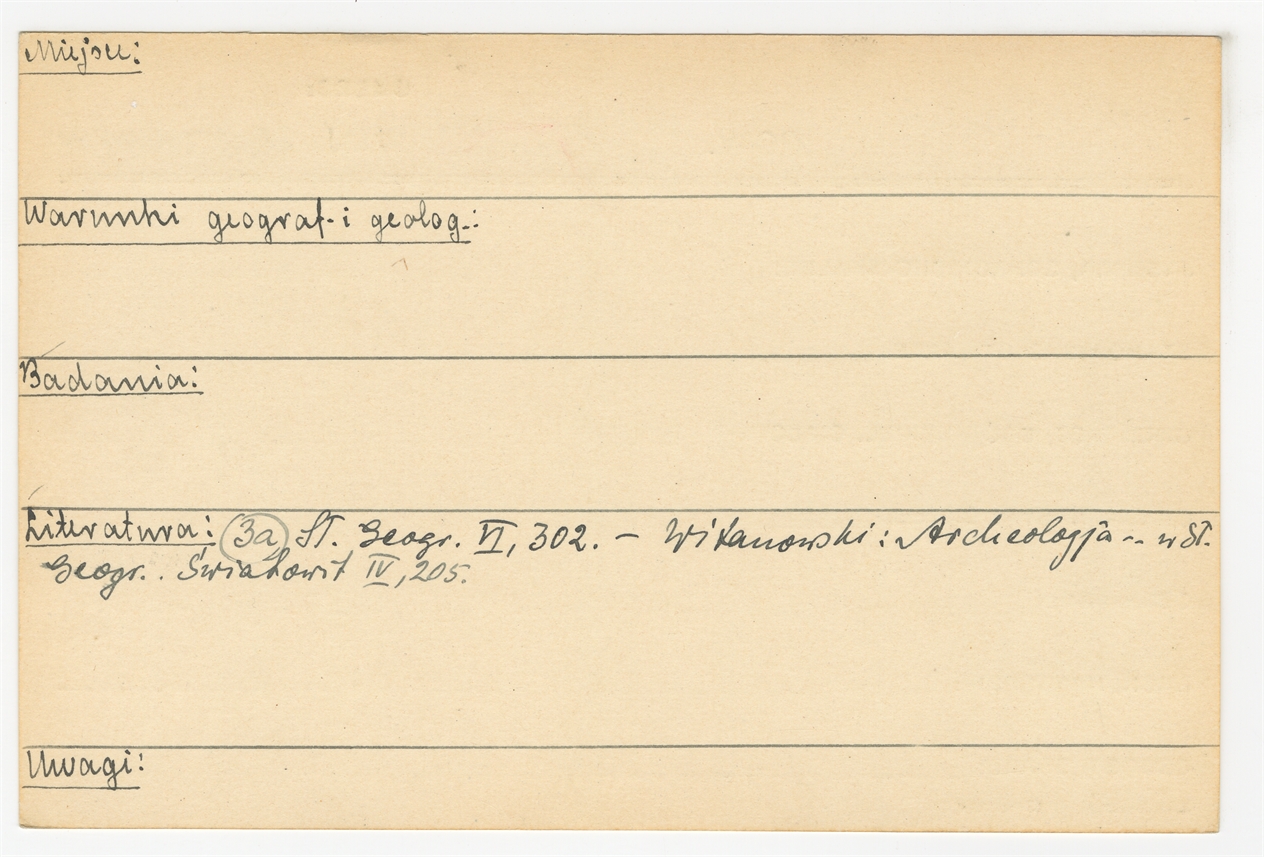 Miejsce:
Warunki geograf. i geolog.:
Badania:
Literatura: (3a) Sł. Geogr. VI, 302. – Witanowski: Archeologja -- w Sł.
Geogr.. Światowit IV, 205.
Uwagi: